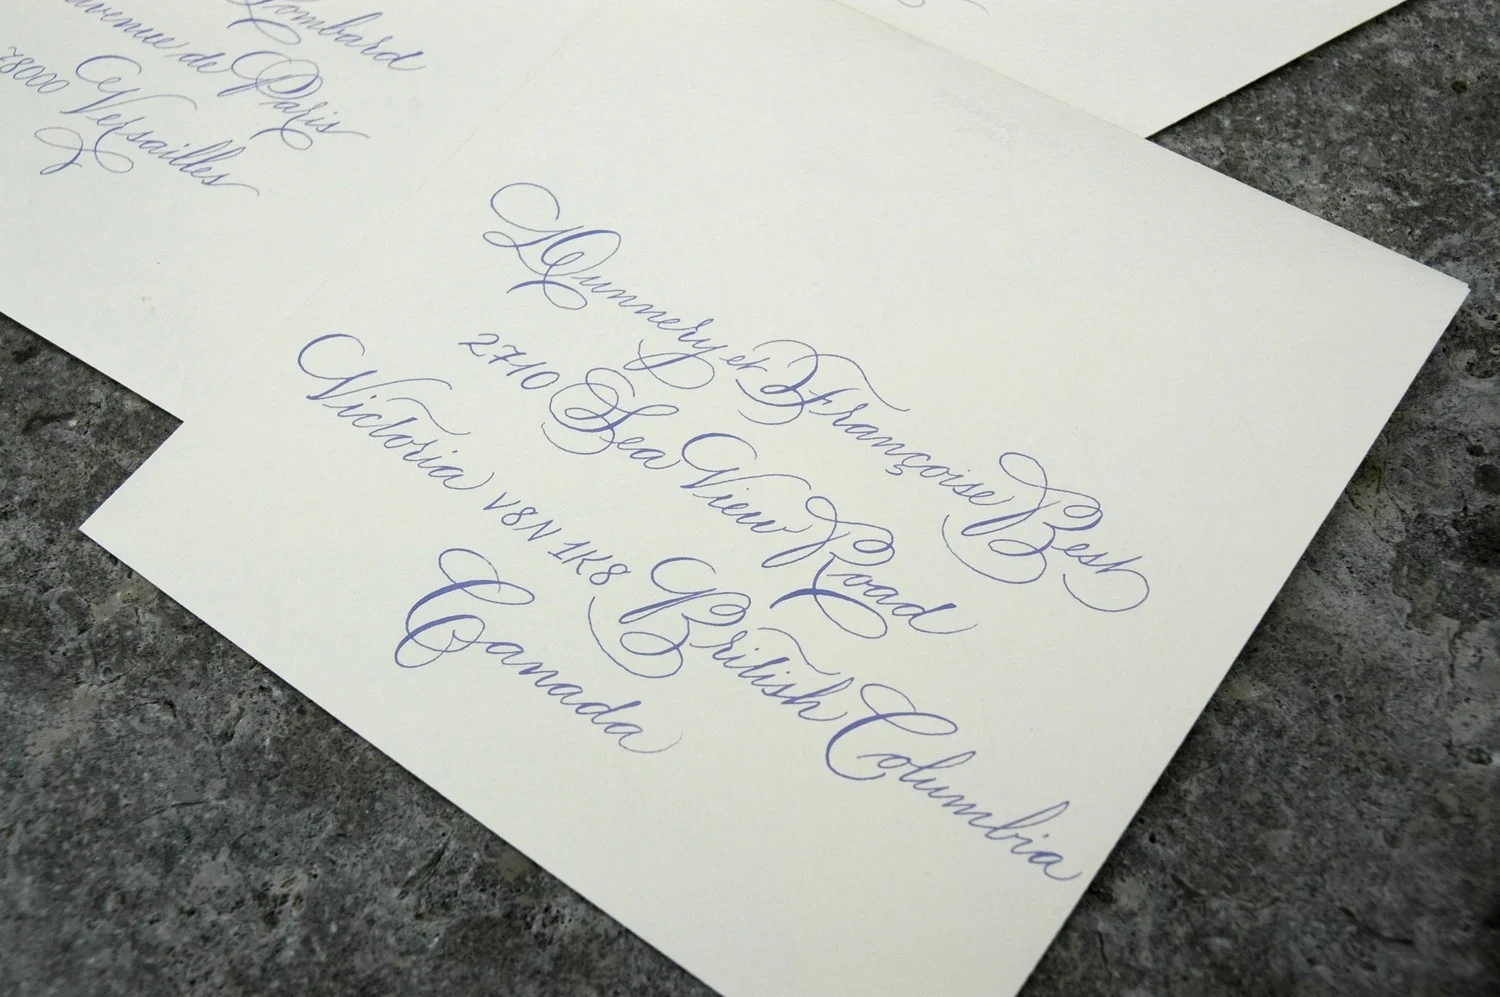 Lombard
avenue de Paris
78000 Versailles
Dunnery et Françoise Best
2710 Sea View Road
Victoria V8N 1K8 British Columbia
Canada